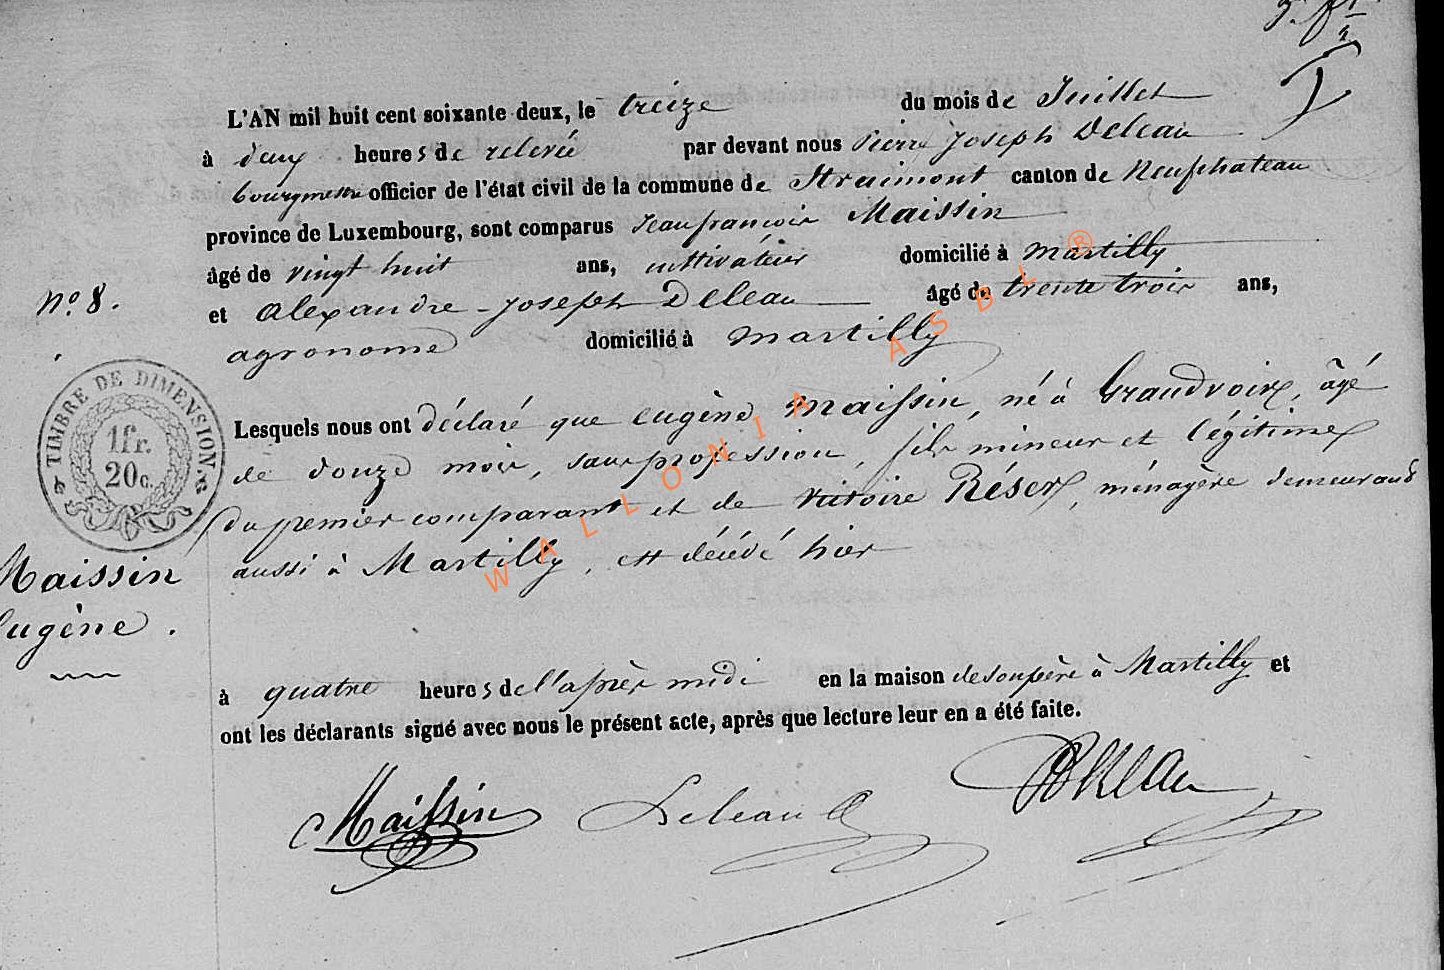 L'AN mil huit cent soixante deux, le treize du mois de Juillet
à deux heures de relevée par devant nous Pierre Joseph Deleau
bourgmestre officier de l'état civil de la commune de Straimont canton de Neufchateau
province de Luxembourg, sont comparus Jean françois Maissin
âgé de vingt huit ans, cultivateur domicilié à Martilly
n°. 8.
et Alexandre - Joseph Deleau âgé de trente trois ans,
agronome domicilié à Martilly
TIMBRE DE DIMENSION.
1fr.
20c.
Lesquels nous ont déclaré que Eugène Maissin, né à Grandvoir, âgé
de douze mois, sans profession, fils mineur et légitime
du premier comparant et de Victoire Réser, ménagère demeurant
aussi à Martilly, est décédé hier
Maissin
Eugène.
à quatre heures de l'après midi en la maison de son père à Martilly et
ont les déclarants signé avec nous le présent acte, après que lecture leur en a été faite.
Maissin Deleau Deleau
WALLONIA ASBL ®